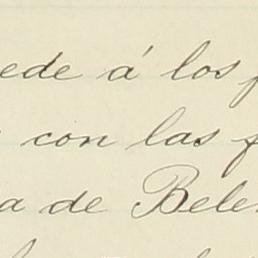 ede á los
con las
a de Bele